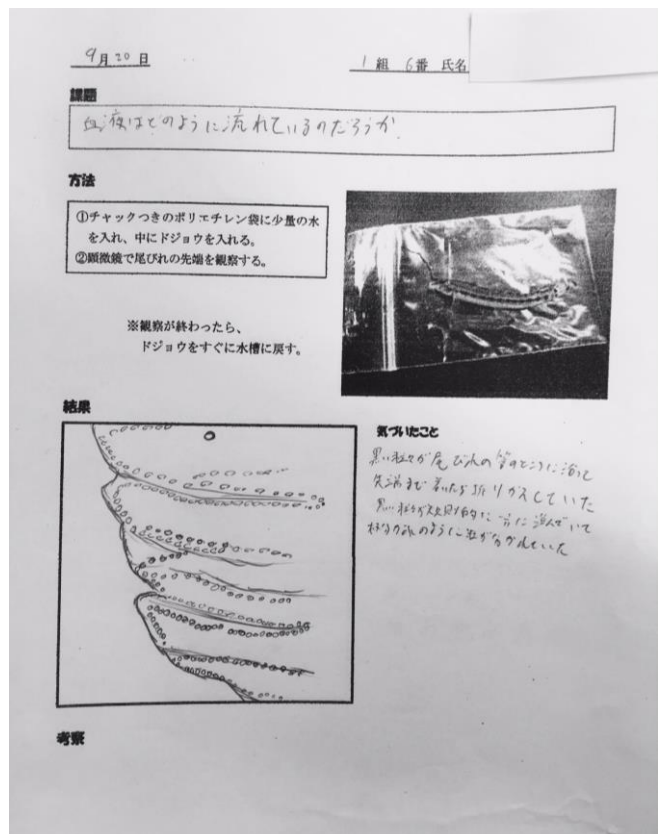 9月20日
1組 6番 氏名
課題
血液はどのように流れているのだろうか
方法
①チャックつきのポリエチレン袋に少量の水
を入れ、中にドジョウを入れる。
②顕微鏡で尾びれの先端を観察する。
※観察が終わったら、
ドジョウをすぐに水槽に戻す。
結果
気づいたこと
黒い粒が尾びれの管のところに沿って
先端まで着いたら折り返していた
黒い粒が規則的に に進んでいて
のように粒が分かれていた
考察